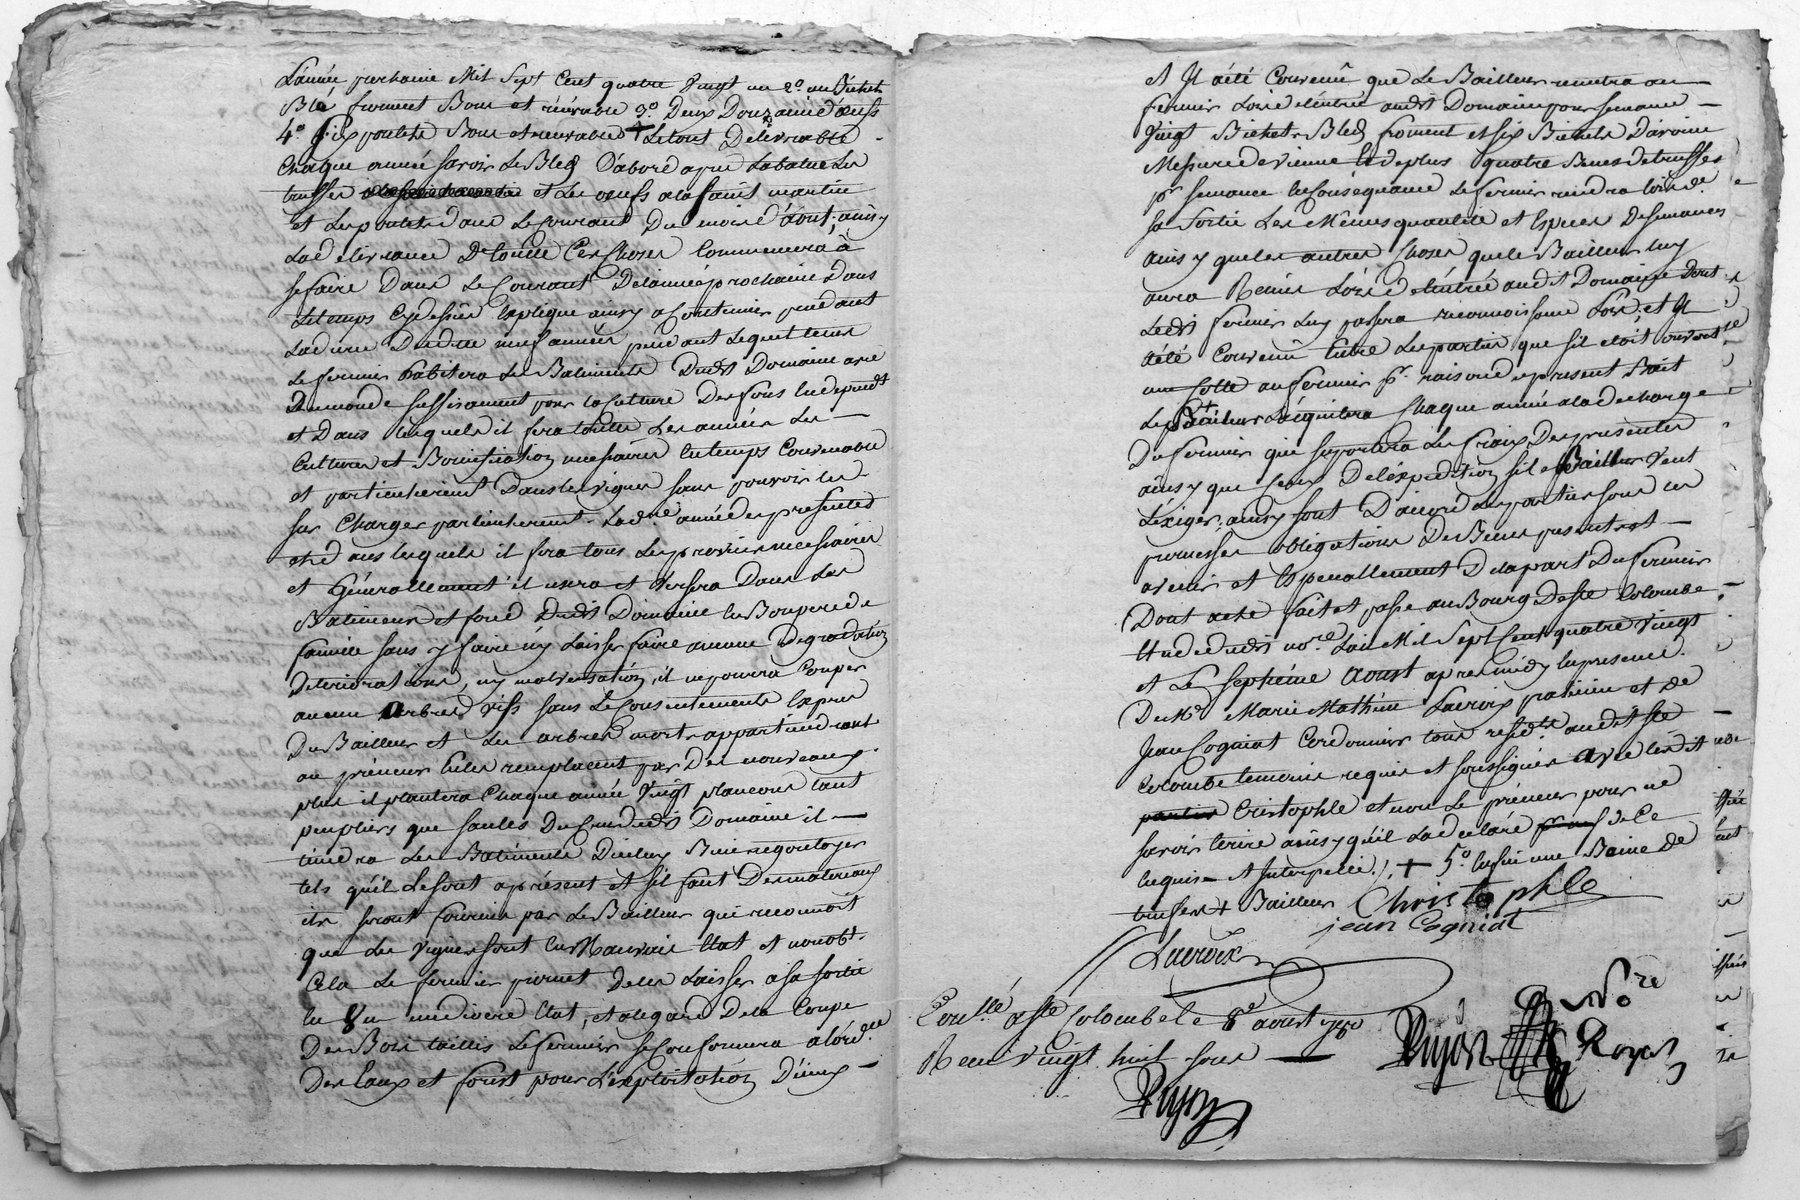 L'année prochaine Mil Sept Cent quatre Vingt un 2° un Bichet
Blé froment Bon et recevable 3° Deux Douzaine d'oeufs
4° six poulets Bon et recevables + Le tout Delivrable
Chaque année savoir Le Bled D'abord apres La batue Les
truffes et Les oeufs a la saint martin
et Les poulets dans Le Courant Du mois d'aout, ainsy
La delivrance De toutes Ces Choses Commencera à
se faire Dans Le Courant De l'année prochaine Dans
Le temps Cydessus Expliqué ainsy a Continuer pendant
La durée Desdites neuf années pendant Lequel tems
Le fermier habitera Les Batiments Dudit Domaine avec
Du monde suffisament pour la Culture Des fons En dependt
et Dans lesquels il fera toutes Les années Les
Cultures et Bonification necessaires En temps Convenable
et particulierement Dans Les vignes sans pouvoir les
sur Charger particulierement Lad. re année des presentes
et dans lesquels il fera tous Les provins necessaires
et Généralement il usera et Versera Dans Les
Batiments et fond Dudit Domaine En Bon pere de
famille sans y faire ny Laisser faire aucune Degradation
Deteriorations, ny malversation, il ne pourra Couper
aucun Arbres vifs sans Le Consentement Exprès
Du Bailleur et Les arbres morts appartiendront
au preneur En les remplacent par Des nouveaux
plus il plantera Chaque année Vingt plançons tant
peupliers que saules Du Cru dudit Domaine il
tiendra Les Batiments D'iceluy Bien
tels qu'il Le sont apresent et s'il faut Des materiaux
ils seront fournis par Le Bailleur qui reconnoit
que Les Vignes sont En Mauvais Etat et nonobt.
Cela Le fermier promet De les Laisser a sa sortie
En Bon etat, et a l'egard De la Coupe
Des Bois taillis Le fermier se Conformera a l'ord.ce
Des Eaux et forest pour L'exploitation D'iceux
Et Il a été Convenû que Le Bailleur remettra au
fermier Lors de l'entrée audit Domaine pour semance
Vingt Bichets Bled froment et six Bichets D'avoine
Mesure de vienne et de plus quatre Benes de truffes
pr semance En Conséquance Le fermier rendra Lors de
sa sortie Les Mêmes quantité et Especes De semances
ainsy que les autres Choses que le Bailleur luy
aura Remis Lors de l'entrée audit Domaine Dont
Ledit fermier Luy passera reconnoissance Lors, et Il
a été Convenû Entre Les parties que s'il étoit
une Cotte au fermier pr. raison du present Bail
Le + Bailleur L'acquitera Chaque année a la decharge
Du fermier qui suportera Les fraix Des presentes
ainsy que Ceux De l'expedition si le Bailleur Veut
L'exiger, ainsy sont D'accord Les parties sous Les
promesses obligations De Biens presents et
avenir et Specialement De la part Du fermier
Dont acte fait et passé au Bourg De Ste Colombe
Etude dudit no.re L'an Mil Sept Cent quatre Vingt
et Le septième Aoust apres midy En presence
De Mr Marie Mathieu Lacroix praticien et de
Jean Cogniat Cordonnier tous resid.ts audit Ste
Colombe temoins requis et soussignés avec ledit
parties Cristophle et non Le preneur pour ne
savoir écrire ainsy qu'il L'a declaré de Ce
Enquis et Interpellé ./. + 5° Enfin une Baine de
truffes + Bailleur Christophle
jean Cogniat
Lacroix
Con.llé a Ste Colombe Le 8e aoust 1780
Recu Vingt huit sous
Pujon No.re
Royal
Pujon